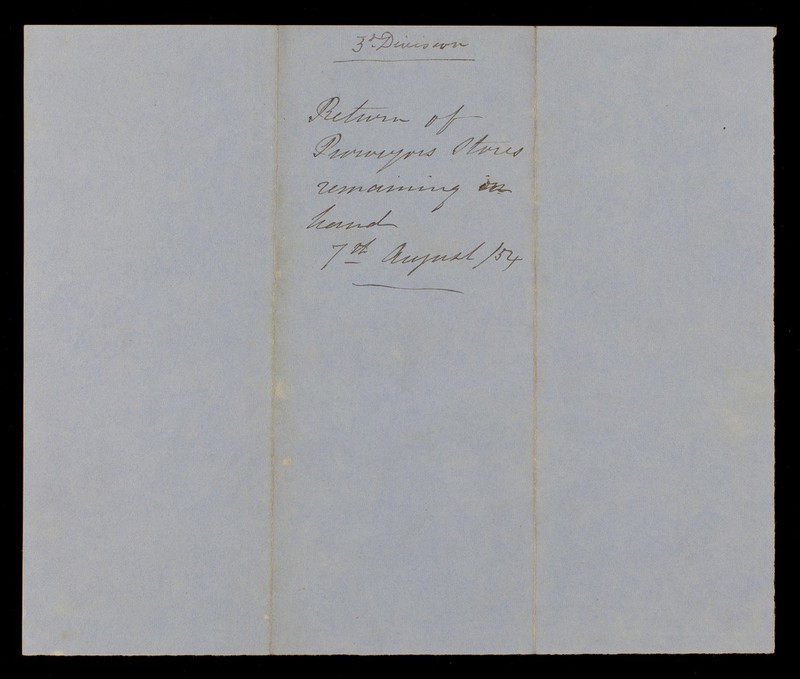 3d. Division
Return of
Purveyors Stores
remaining in
hand
7th August /54